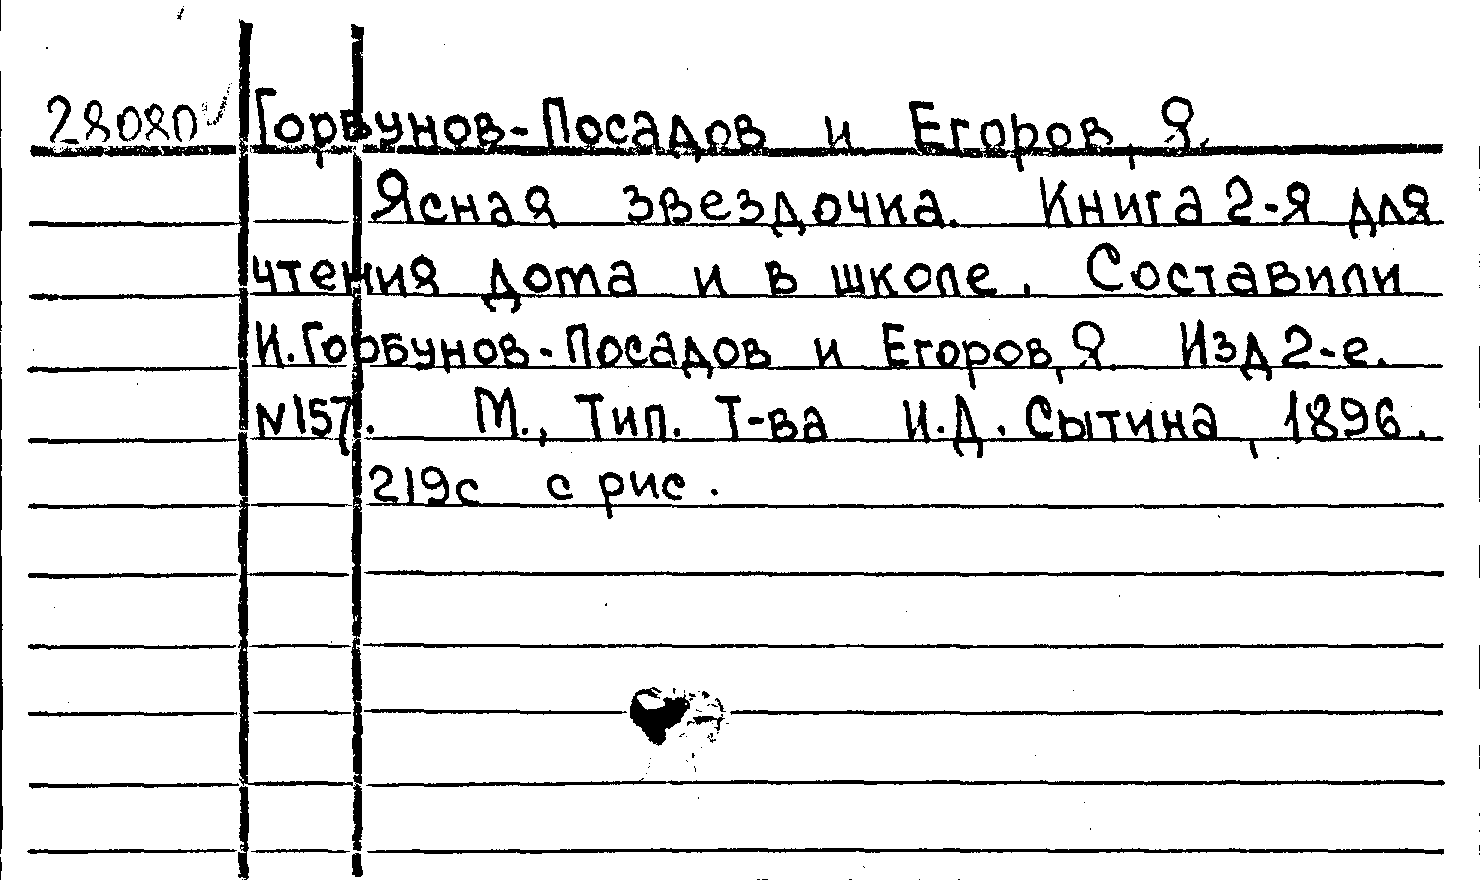 28080 Горбунов-Посадов и Егоров, Я.
Ясная звездочка. Книга 2-я для
чтения дома и в школе. Составили
И. Горбунов-Посадов и Егоров, Я. Изд 2-е.
N157. М., Тип. Т-ва И.Д. Сытина, 1896.
219с с рис.